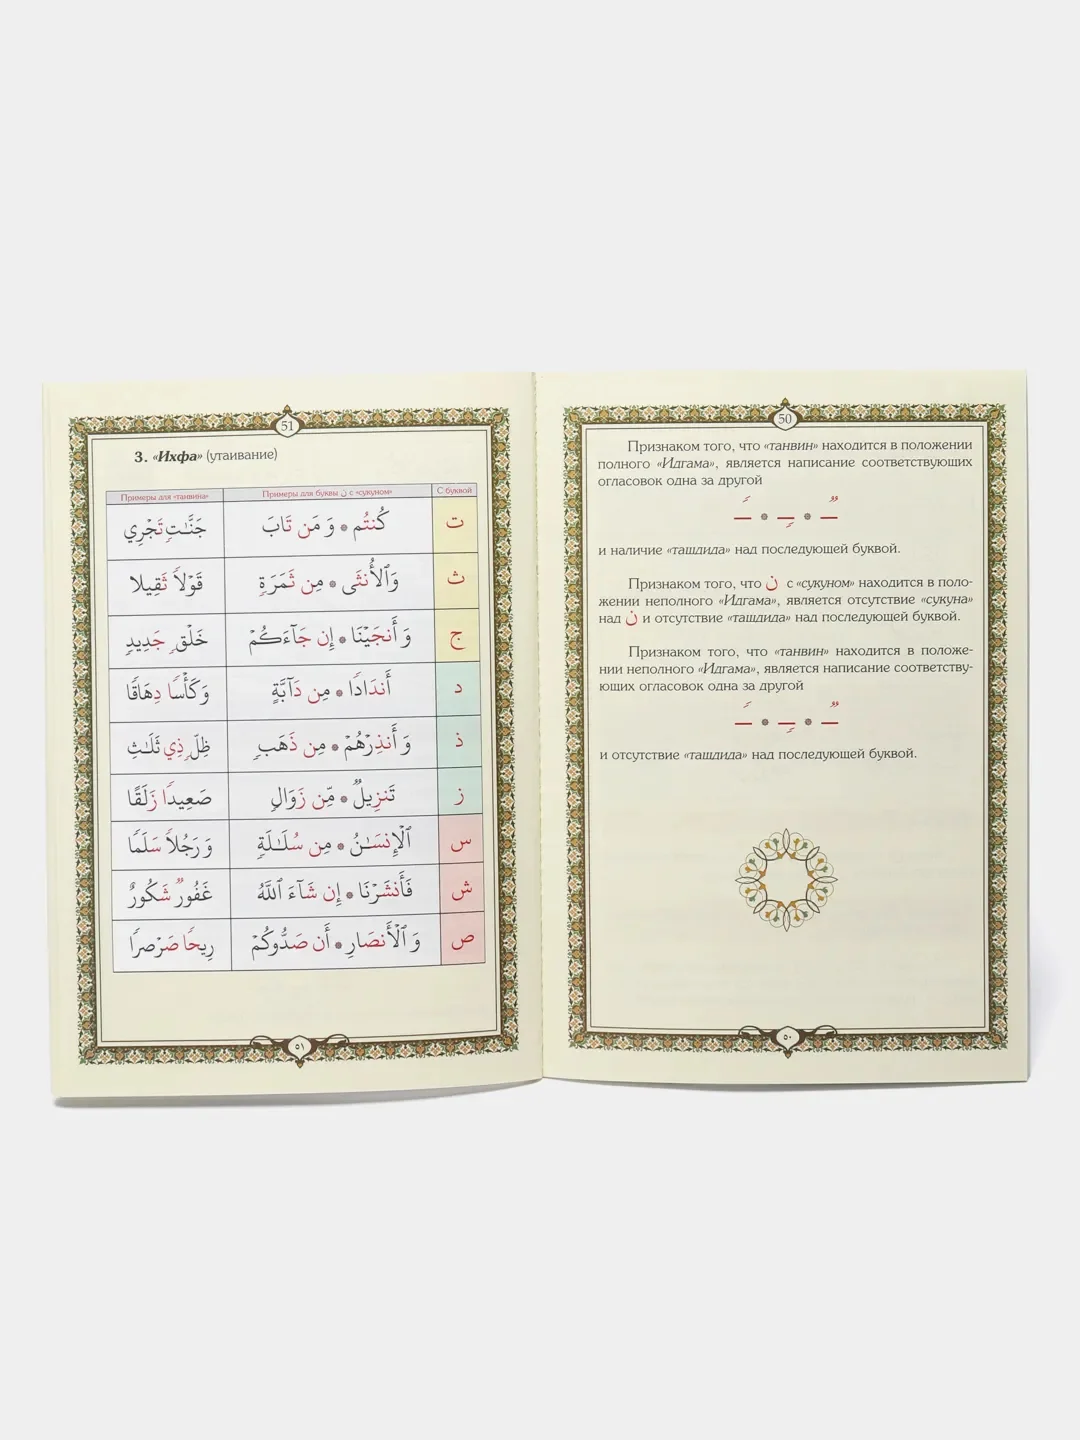 50
Признаком того, что «танвин» находится в положении
полного «Идгама», является написание соответствующих
огласовок одна за другой
и наличие «ташдида» над последующей буквой.
Признаком того, что ن с «сукуном» находится в поло-
жении неполного «Идгама», является отсутствие «сукуна»
над ن и отсутствие «ташдида» над последующей буквой.
Признаком того, что «танвин» находится в положе-
нии неполного «Идгама», является написание соответству-
ющих огласовок одна за другой
и отсутствие «ташдида» над последующей буквой.
٥٠
51
3. «Ихфа» (утаивание)
С буквой Примеры для буквы ن с «сукуном» Примеры для «танвина»
ت كُنتُم * وَ مَن تَابَ جَنَّـٰتٍ تَجْرِي
ث وَٱلْأُنثَى * مِن ثَمَرَةٍ قَوْلًا ثَقِيلا
ج وَ أَنجَيْنَا * إِن جَآءَكُمْ خَلْقٍ جَدِيدٍ
د أَندَادًا * مِن دَآبَّةٍ وَكَأْسًا دِهَاقًا
ذ وَ أَنذِرْهُمْ * مِن ذَهَبٍ ظِلٍّ ذِي ثَلَـٰثِ
ز تَنزِيلٌ * مِّن زَوَالٍ صَعِيدًا زَلَقًا
س ٱلْإِنسَـٰنُ * مِن سُلَـٰلَةٍ وَ رَجُلًا سَلَمًا
ش فَأَنشَرْنَا * إِن شَآءَ ٱللَّهُ غَفُورٌ شَكُورٌ
ص وَ ٱلْأَنصَارِ * أَن صَدُّوكُمْ رِيحًا صَرْصرًا
٥١